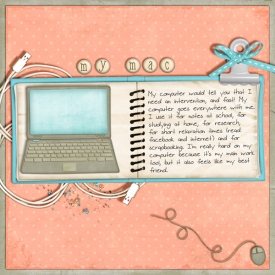 my mac
My computer would tell you that I
need an intervention, and fast! My
computer goes everywhere with me.
I use it for notes at school, for
studying at home, for research,
for short relaxation times (read
facebook and internet) and for
scrapbooking. I'm really hard on my
computer because it's my main work
tool, but it also feels like my best
friend.